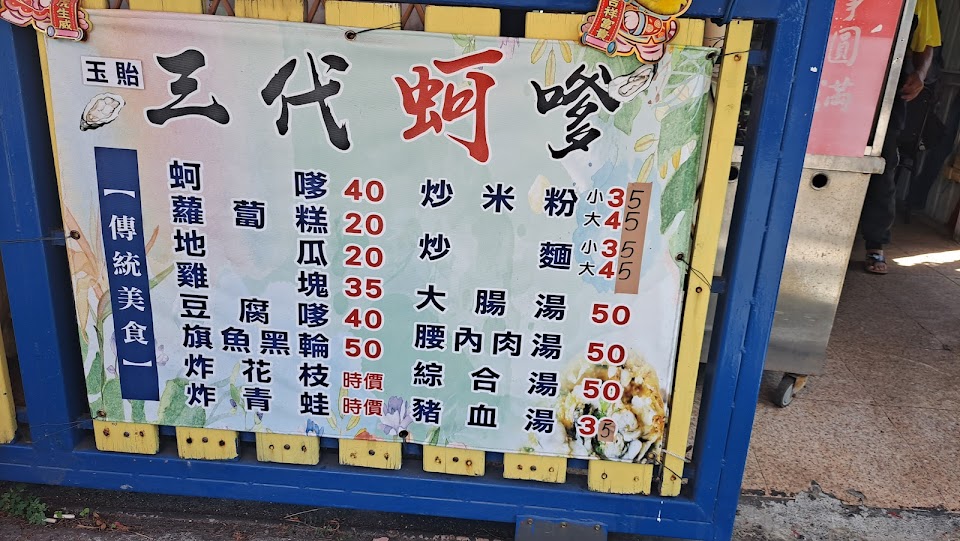 玉貽
三代蚵嗲
【傳統美食】
蚵嗲 40
蘿蔔糕 20
地瓜 20
雞塊 35
豆腐嗲 40
旗魚黑輪 50
炸花枝 時價
炸青蛙 時價
炒米粉 小 35
大 45
炒麵 小 35
大 45
大腸湯 50
腰內肉湯 50
綜合湯 50
豬血湯 35
圓滿